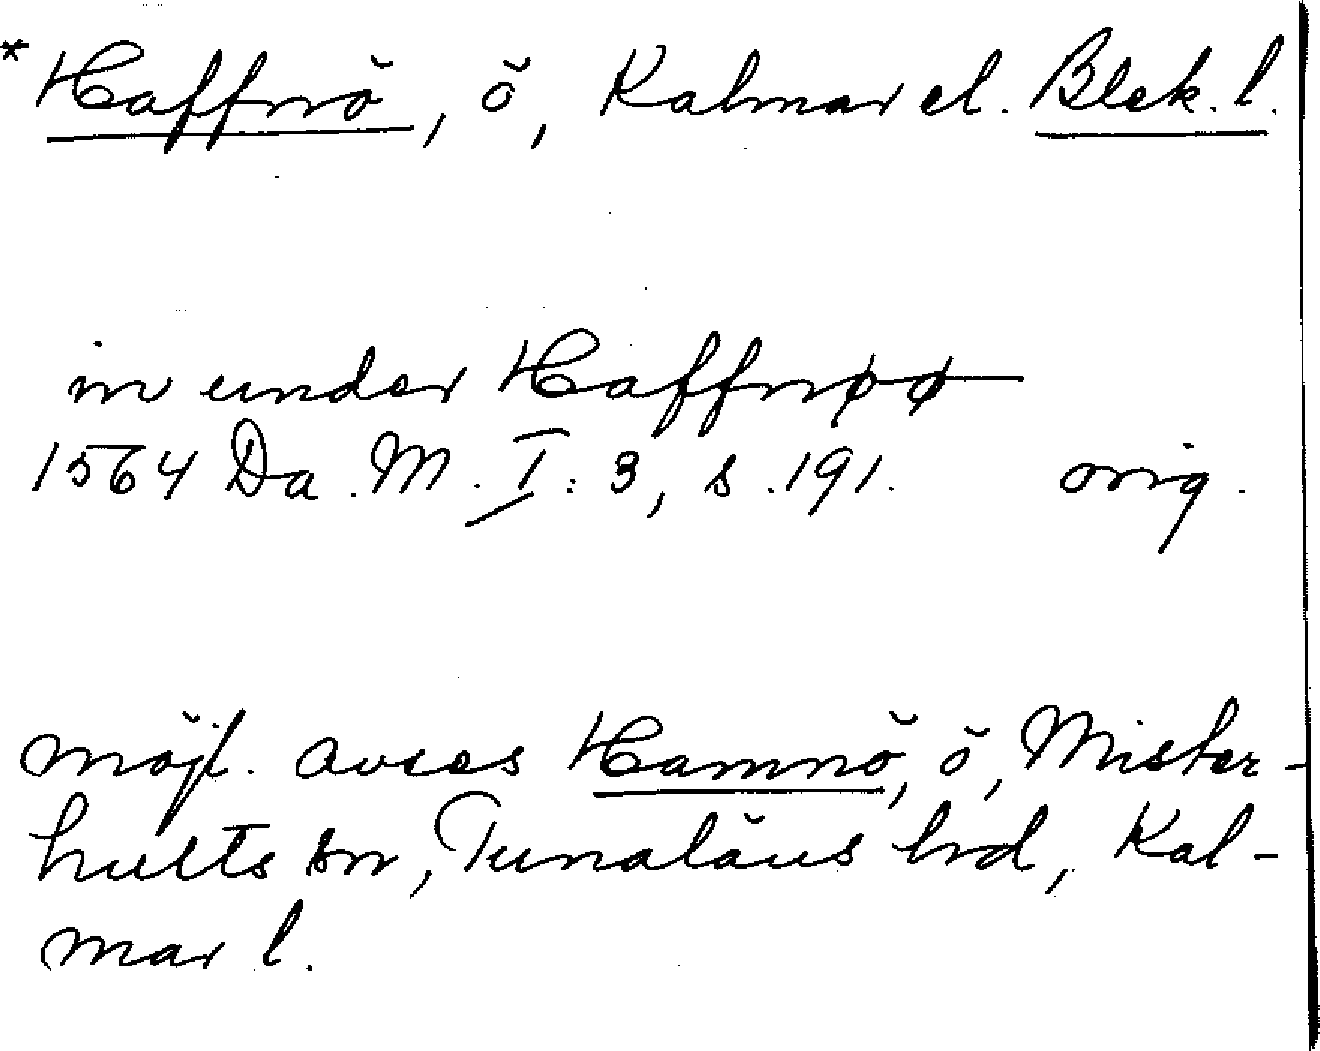 * Haffnö, ö, Kalmar el. Blek. l.
in under Haffnøø
1564 Da. M. I: 3, s. 191. orig.
möjl. avses Hamnö, ö, Mister-
hults sn, Tunaläns hd, Kal-
mar l.